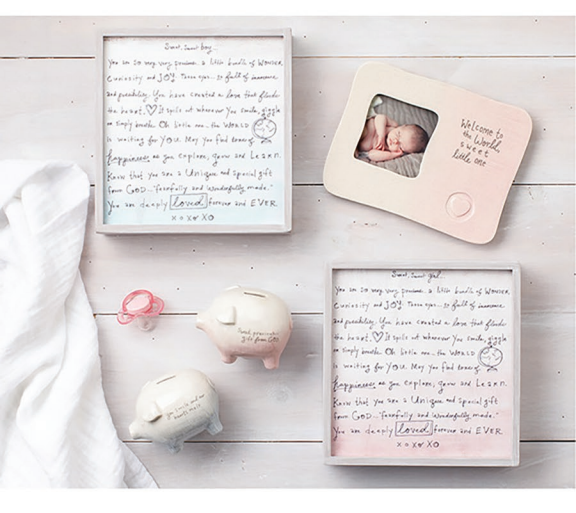 Sweet, Sweet boy...
You are so very very precious. a little bundle of WONDER,
Curiosity and JOY. Those eyes... so full of innocence
and possibility. You have created a love that floods
the heart. It spills out whenever You smile, giggle
or simply breathe. Oh little one... the WORLD
is waiting for YOU. May you find tones of
happiness as you explore, grow and LEARN.
Know that you are a Unique and special gift
from GOD... "fearfully and wonderfully made."
You are deeply loved forever and EVER
XOXOXO
Welcome to
the World,
sweet
little one
Sweet, Sweet girl...
You are so very very precious. a little bundle of WONDER,
Curiosity and JOY. Those eyes... so full of innocence
and possibility. You have created a love that floods
the heart. It spills out whenever You smile, giggle
or simply breathe. Oh little one... the WORLD
is waiting for YOU. May you find
happiness as you explore, grow and LEARN.
Know that you are a Unique and special gift
from GOD... "fearfully and wonderfully made."
You are deeply loved forever and EVER
XOXOXO
gift from GOD
You